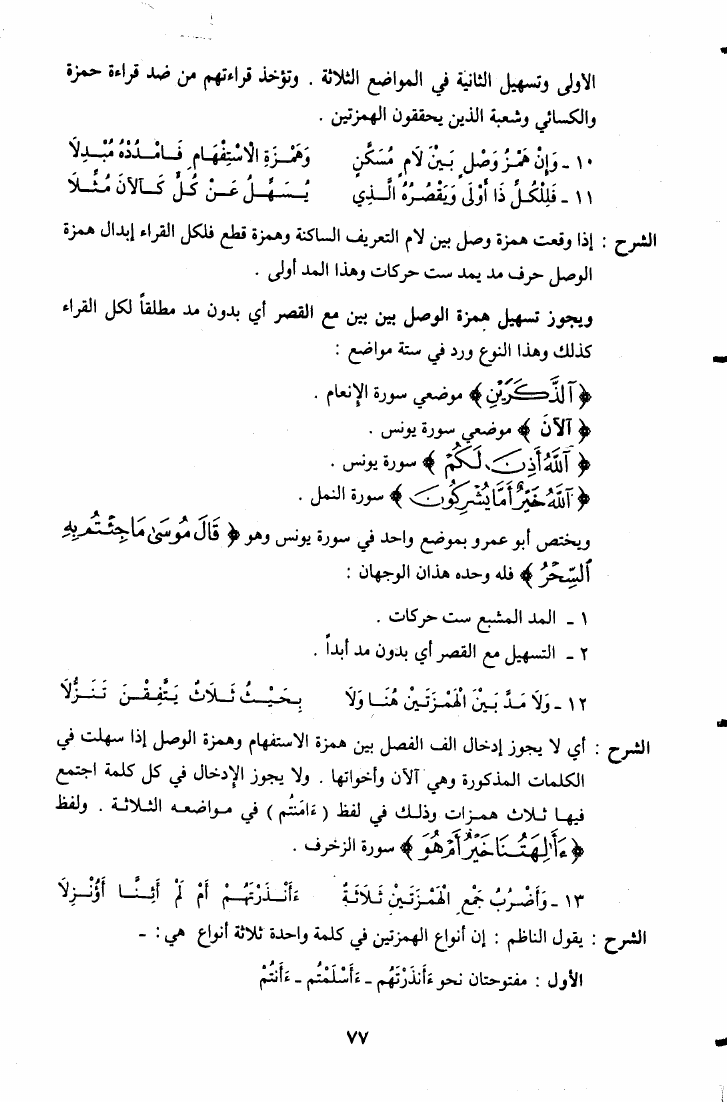 الأولى وتسهيل الثانية في المواضع الثلاثة . وتؤخذ قراءتهم من ضد قراءة حمزة
والكسائي وشعبة الذين يحققون الهمزتين .
١٠ ـ وَإِنْ هَمْزُ وَصْلٍ بَيْنَ لَامٍ مُسَكَّنٍ وَهَمْزَةِ الْاسْتِفْهَامِ فَامْدُدْهُ مُبْدِلاَ
١١ ـ فَلِلْكُلِّ ذَا أَوْلَى وَيَقْصُرُهُ الَّذِي يُسَهِّلُ عَنْ كُلٍّ كَآلآنَ مُثِّلَا
الشرح : إذا وقعت همزة وصل بين لام التعريف الساكنة وهمزة قطع فلكل القراء إبدال همزة
الوصل حرف مد يمد ست حركات وهذا المد أولى .
ويجوز تسهيل همزة الوصل بين بين مع القصر أي بدون مد مطلقاً لكل القراء
كذلك وهذا النوع ورد في ستة مواضع :
﴿ آلذَّكَرَيْنِ ﴾ موضعي سورة الإنعام .
﴿ آلآنَ ﴾ موضعي سورة يونس .
﴿ آللَّهُ أَذِنَ لَكُمْ ﴾ سورة يونس .
﴿ آللَّهُ خَيْرٌ أَمَّا يُشْرِكُونَ ﴾ سورة النمل .
ويختص أبو عمرو بموضع واحد في سورة يونس وهو ﴿ قَالَ مُوسَىٰ مَا جِئْتُم بِهِ
السِّحْرُ ﴾ فله وحده هذان الوجهان :
١ ـ المد المشبع ست حركات .
٢ ـ التسهيل مع القصر أي بدون مد أبداً .
١٢ ـ وَلَا مَدَّ بَيْنَ الْهَمْزَتَيْنِ هُنَا وَلَا بِحَيْثُ ثَلَاثٌ يَتَّفِقْنَ تَنَزُّلَا
الشرح : أي لا يجوز إدخال الف الفصل بين همزة الاستفهام وهمزة الوصل إذا سهلت في
الكلمات المذكورة وهي آلآن وأخواتها . ولا يجوز الإدخال في كل كلمة اجتمع
فيها ثلاث همزات وذلك في لفظ ( ءَامَنتُم ) في مواضعه الثلاثة . ولفظ
﴿ ءَأَٰلِهَتُنَا خَيْرٌ أَمْ هُوَ ﴾ سورة الزخرف .
١٣ ـ وَأَضْرُبُ جَمْعِ الْهَمْزَتَيْنِ ثَلَاثَةٌ ءَأَنْذَرْتَهُمْ أَمْ لَمْ أَئِنَّا أَؤُنْزِلَا
الشرح : يقول الناظم : إن أنواع الهمزتين في كلمة واحدة ثلاثة أنواع هي : ـ
الأول : مفتوحتان نحو ءَأَنذَرْتَهُم ـ ءَأَسْلَمْتُم ـ ءَأَنتُمْ
٧٧